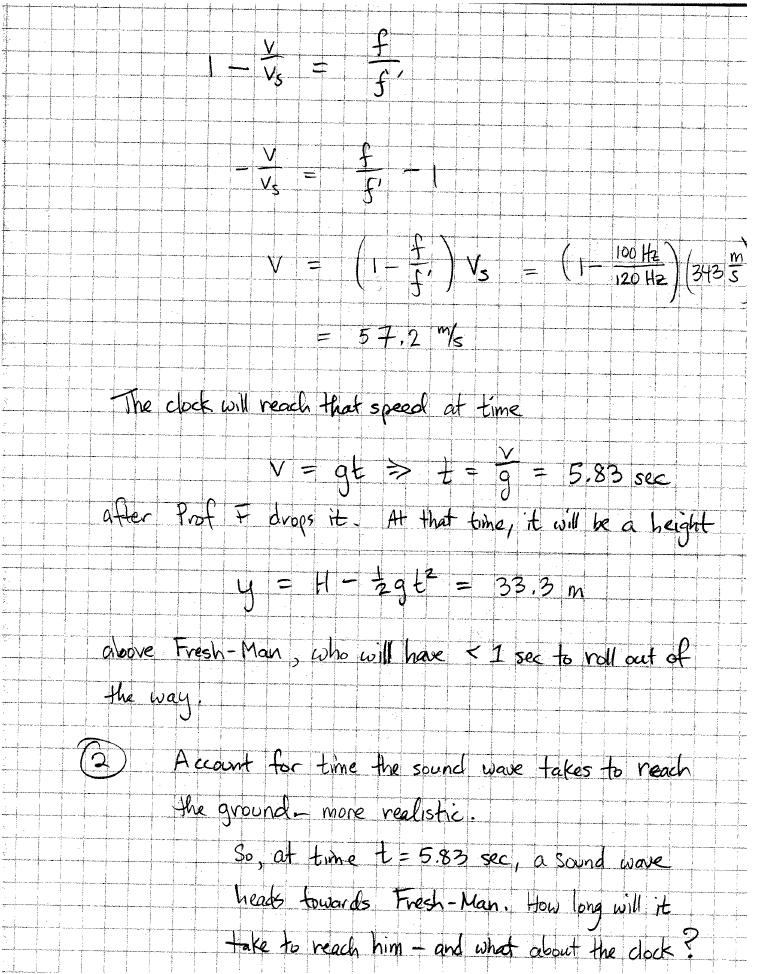 1 - v/vs = f/f'
- v/vs = f/f' - 1
v = (1 - f/f') Vs = (1 - 100 Hz/120 Hz)(343 m/s
= 57.2 m/s
The clock will reach that speed at time
v = gt ⇒ t = v/g = 5.83 sec
after Prof F drops it. At that time, it will be a height
y = H - ½gt² = 33.3 m
above Fresh-Man, who will have < 1 sec to roll out of
the way.
② Account for time the sound wave takes to reach
the ground - more realistic.
So, at time t = 5.83 sec, a sound wave
heads towards Fresh-Man. How long will it
take to reach him - and what about the clock?